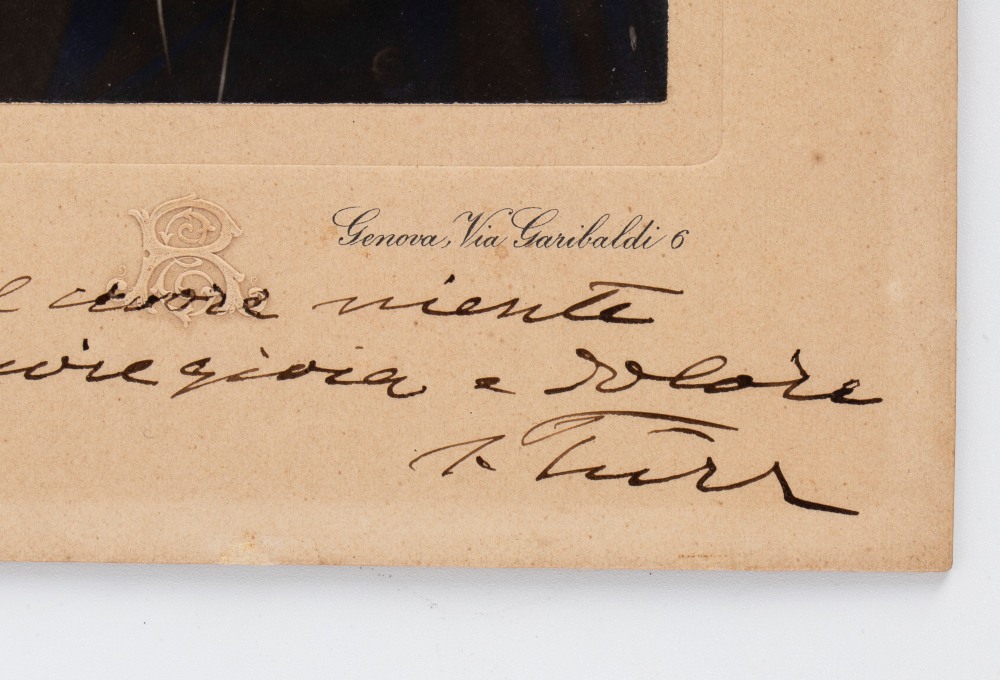 R
Genova, Via Garibaldi 6
cuore niente
gioia e dolore
Türr